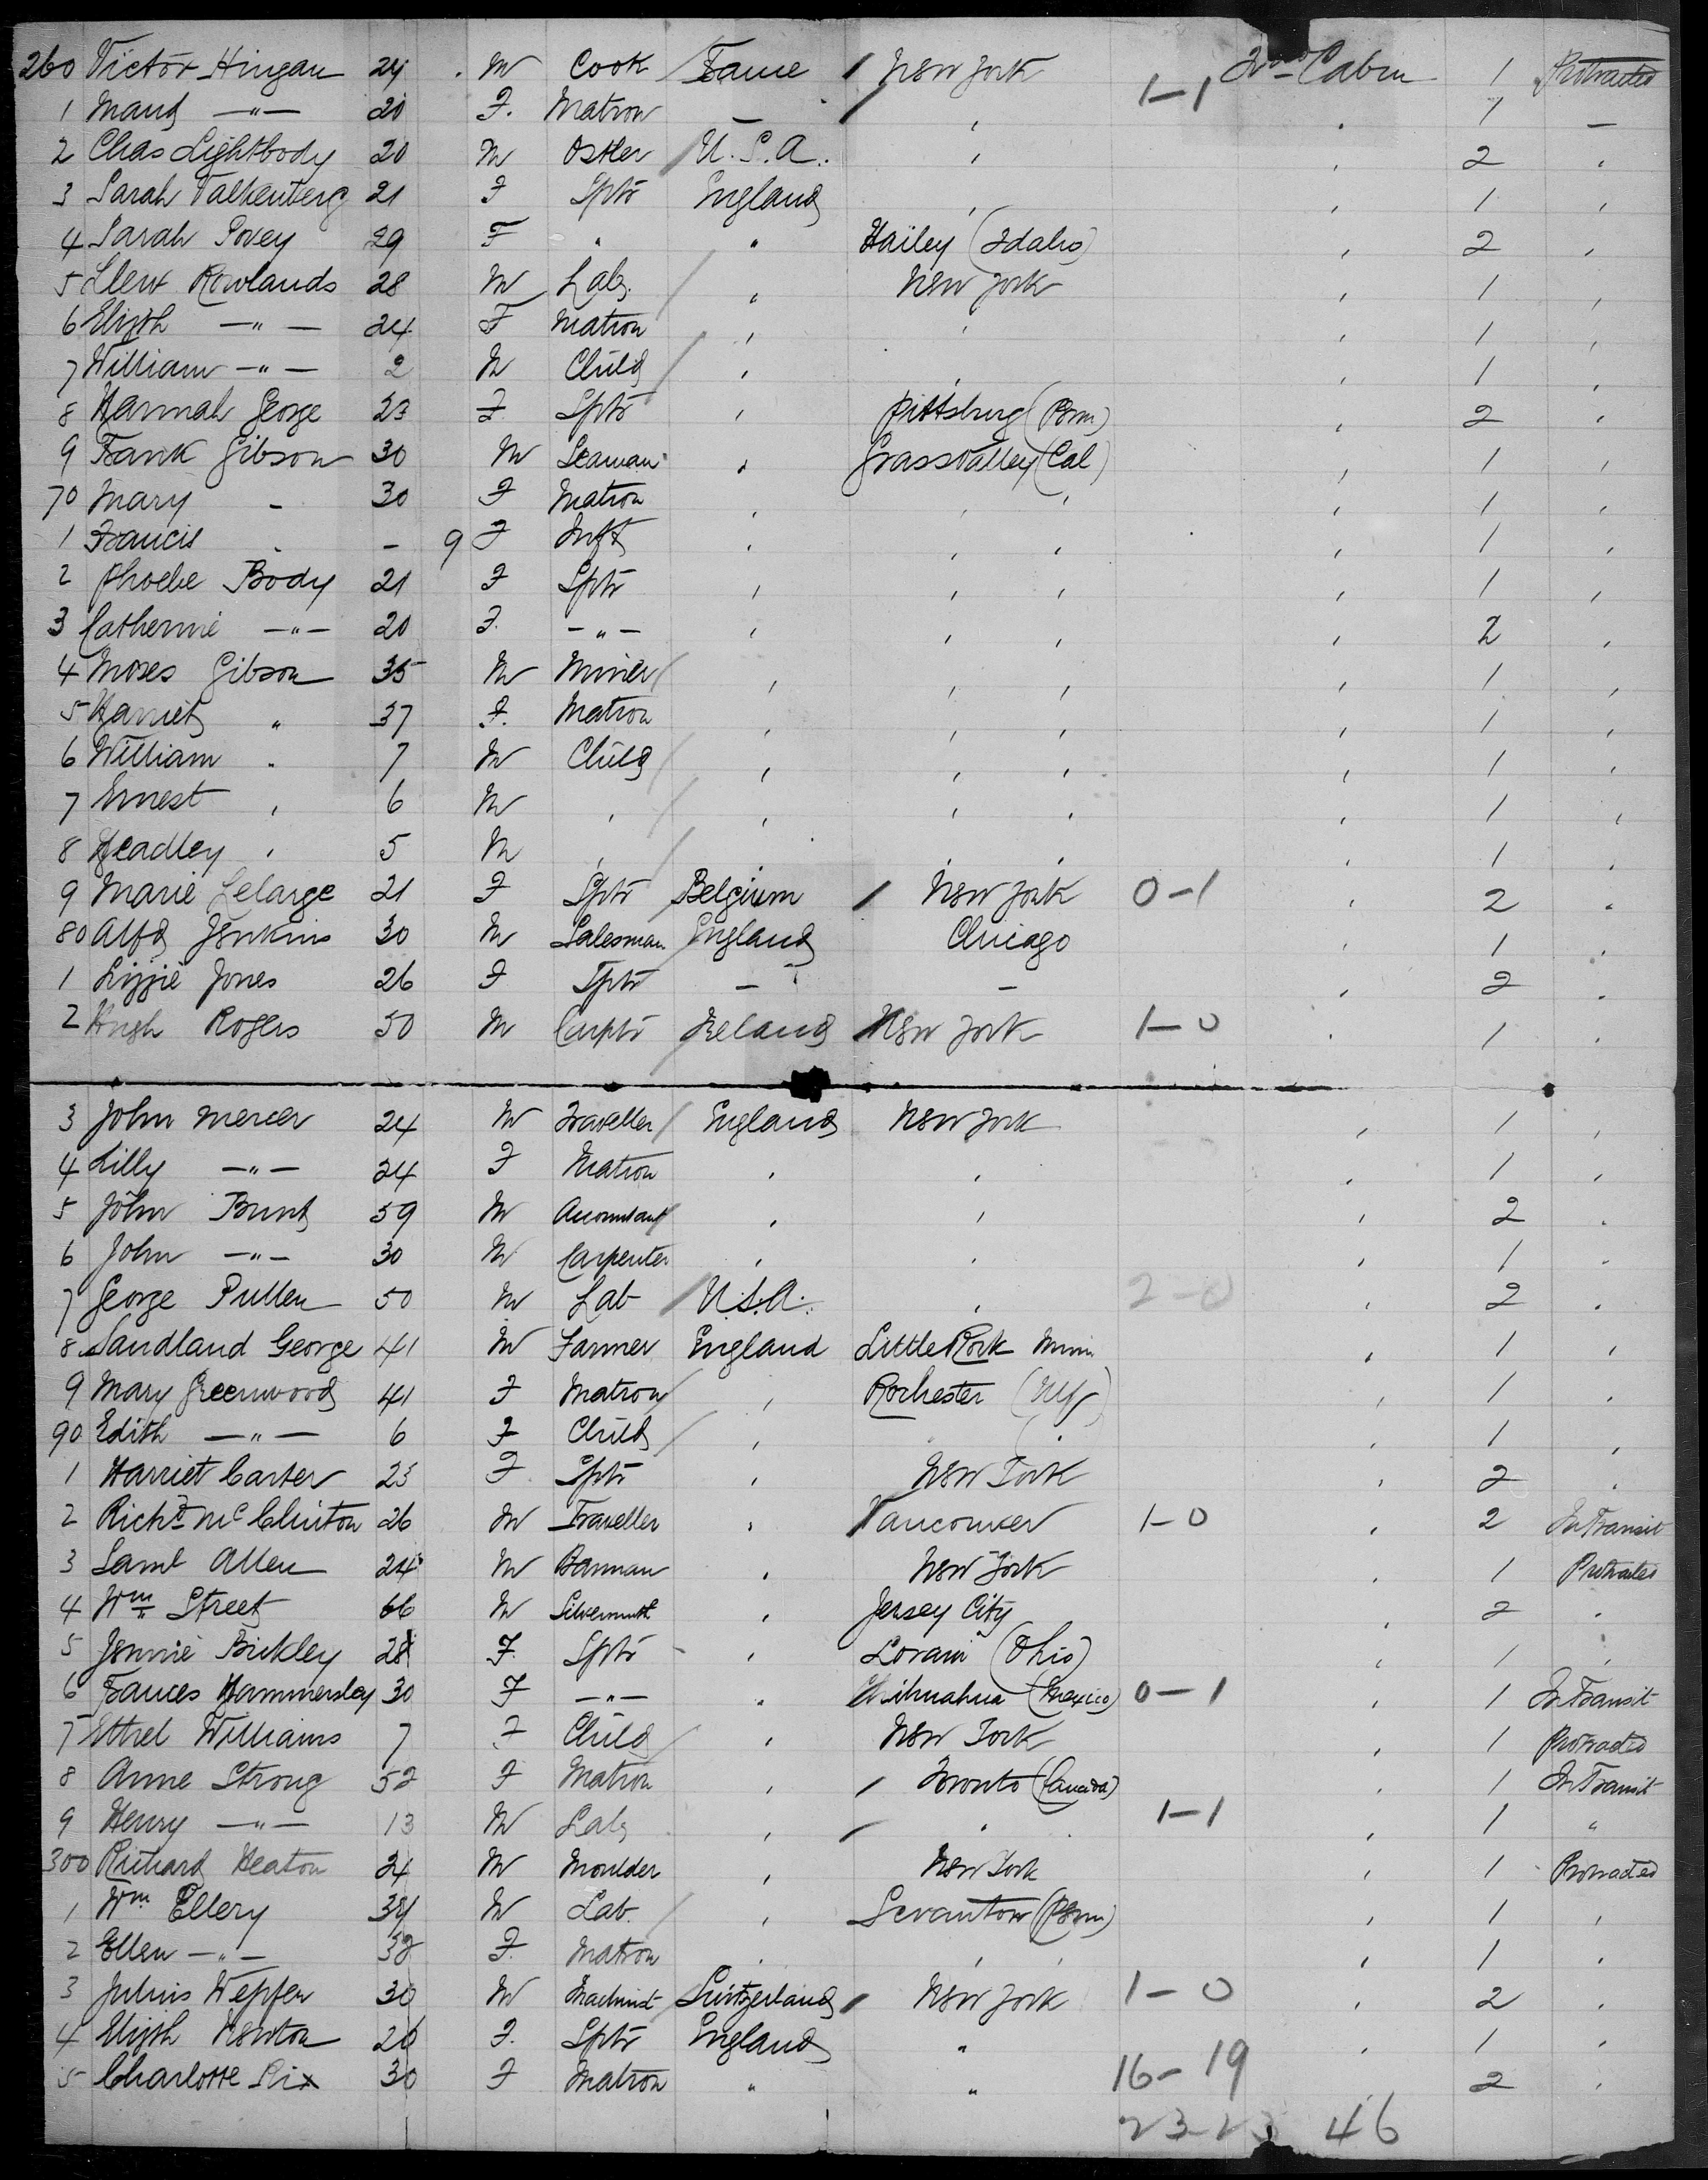 260 Victor Hingau 24 M Cook France New York 2nd Cabin 1 Protracted
1 Maud —"— 20 F. Matron — 1-1 1 —
2 Chas Lightbody 20 M Ostler U.S.A. 2
3 Sarah Valkenberg 21 F Sptr England 1
4 Sarah Povey 29 F " " Hailey (Idaho) 2
5 Llew Rowlands 28 M Lab. " New York 1
6 Elizth —"— 24 F Matron 1
7 William —"— 2 M Child 1
8 Hannah George 23 F Sptr Pittsburg (Penn) 2
9 Frank Gibson 30 M Seaman Grass Valley (Cal) 1
70 Mary - 30 F Matron 1
1 Francis - 9 F Inft 1
2 Phoebe Body 21 F Sptr 1
3 Catherine —"— 20 F. —"— 2
4 Moses Gibson 35 M Miner 1
5 Harriet " 37 F. Matron 1
6 William 7 M Child 1
7 Ernest 6 M 1
8 Headley 5 M 1
9 Marie Lelarge 21 F Sptr Belgium New York 0-1 2
80 Alfd Jenkins 30 M Salesman England Chicago 1
1 Lizzie Jones 26 F Sptr — — 2
2 Hugh Rogers 50 M Carptr Ireland New York 1-0 1
3 John Mercer 24 M Traveller England New York 1
4 Lilly —"— 24 F Matron 1
5 John Bunt 59 M Accountant 2
6 John —"— 30 M Carpenter 1
7 George Pullen 50 M Lab U.S.A. 2-0 2
8 Sandland George 41 M Farmer England Little Rock Minn 1
9 Mary Greenwood 41 F Matron Rochester (NY) 1
90 Edith —"— 6 F Child 1
1 Harriet Carter 23 F Sptr New York 2
2 Richd McClinton 26 M Traveller Vancouver 1-0 2 In Transit
3 Saml Allen 24 M Barman New York 1 Protracted
4 Wm Street 66 M Silversmith Jersey City 2
5 Jennie Bickley 28 F. Sptr Lorain (Ohio) 1
6 Frances Hammersley 30 F —"— Chihuahua (Mexico) 0-1 1 In Transit
7 Ethel Williams 7 F Child New York 1 Protracted
8 Anne Strong 52 F Matron Toronto (Canada) 1 In Transit
9 Henry —"— 13 M Lab. 1-1 1 "
300 Richard Heaton 24 M Moulder New York 1 Protracted
1 Wm Ellery 34 M Lab. Scranton (Penn) 1
2 Ellen —"— 32 F. Matron 1
3 Julius Wepfer 30 M Machinist Switzerland New York 1-0 2
4 Elizth Newton 26 F. Sptr England " 1
5 Charlotte Rix 30 F Matron " " 16-19 2
23-23 46